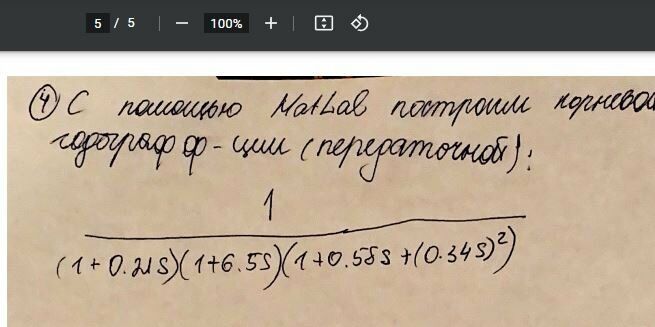 5 / 5 — 100% +
④ С помощью MatLab построим корневой
годограф ф-ции (передаточной):
1
(1+0.21s)(1+6.5s)(1+0.58s+(0.34s)²)